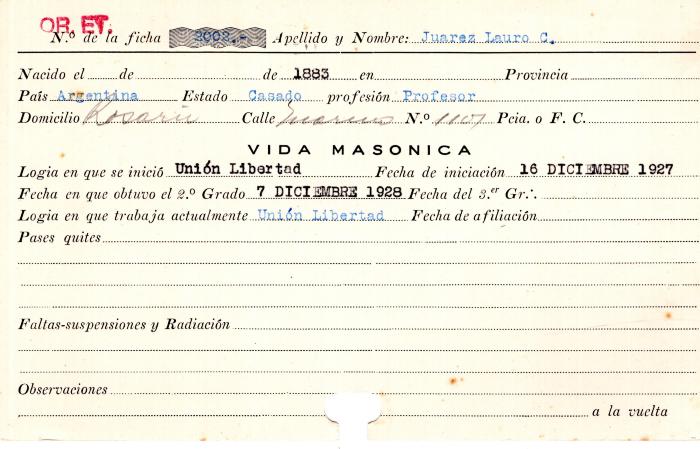 OR. ET.
N.º de la ficha 2002.- Apellido y Nombre: Juarez Lauro C.
Nacido el de de 1883 en Provincia
País Argentina Estado Casado profesión Profesor
Domicilio Rosario Calle Moreno N.º 1107 Pcia. o F. C.
VIDA MASONICA
Logia en que se inició Unión Libertad Fecha de iniciación 16 DICIEMBRE 1927
Fecha en que obtuvo el 2.º Grado 7 DICIEMBRE 1928 Fecha del 3.er Gr.·.
Logia en que trabaja actualmente Unión Libertad Fecha de afiliación
Pases quites
Faltas-suspensiones y Radiación
Observaciones
a la vuelta